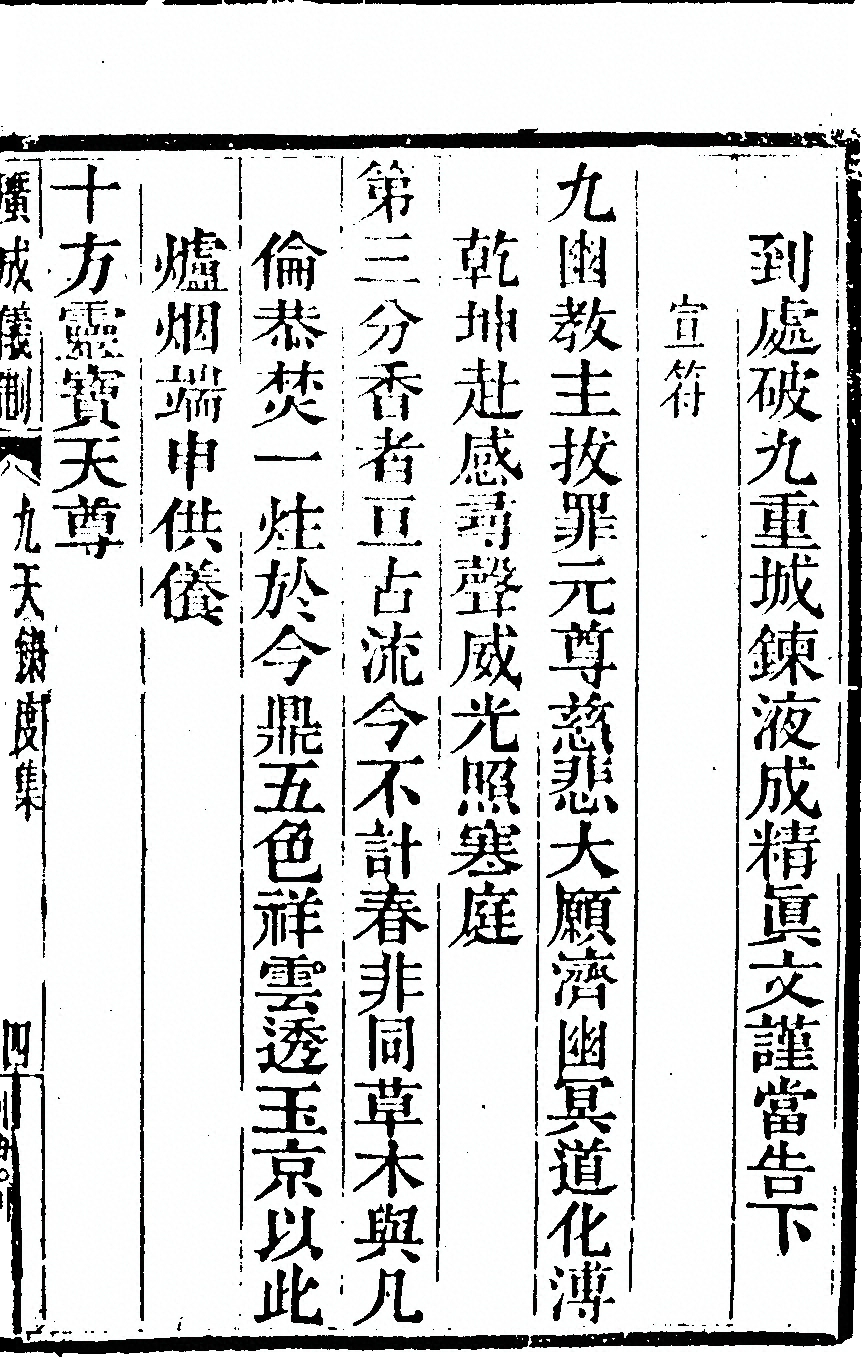 到處破九重城鍊液成精眞文謹當告下
宣符
九幽教主拔罪元尊慈悲大願濟幽冥道化溥
乾坤赴感尋聲威光照寒庭
第三分香者亘古流今不計春非同草木與凡
倫恭焚一炷於今鼎五色祥雲透玉京以此
爐烟端申供養
十方靈寶天尊
廣成儀制
九天鍊度集
四